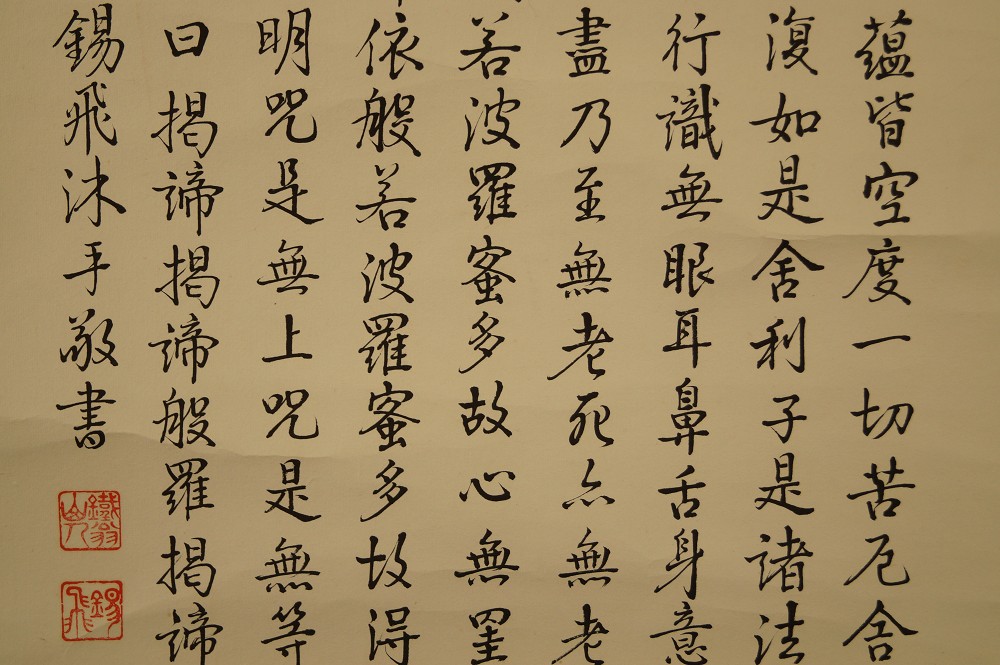 蘊皆空度一切苦厄舍
復如是舍利子是諸法
行識無眼耳鼻舌身意
盡乃至無老死亦無老
若波羅蜜多故心無罣
依般若波羅蜜多故得
明咒是無上咒是無等
曰揭諦揭諦般羅揭諦
錫飛沐手敬書
錫飛